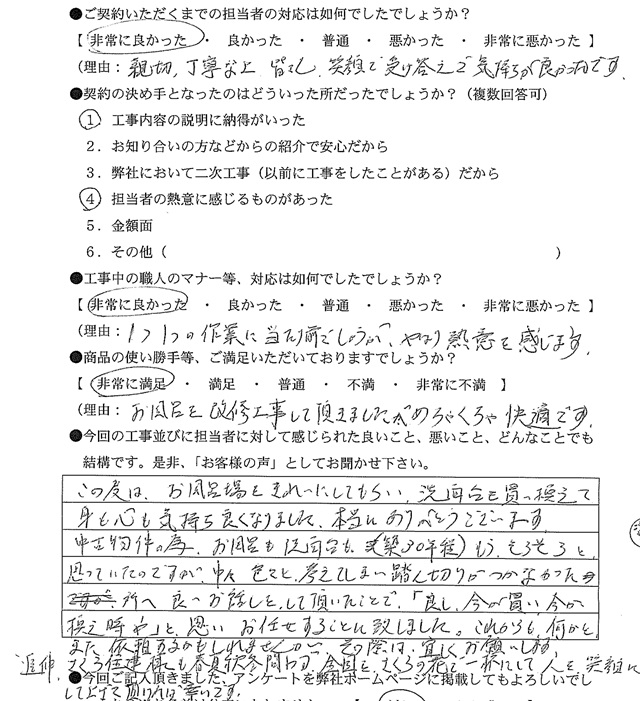 ●ご契約いただくまでの担当者の対応は如何でしたでしょうか？
【 非常に良かった ・ 良かった ・ 普通 ・ 悪かった ・ 非常に悪かった 】
(理由： 親切，丁寧な上 皆さん 笑顔で受け答えで気持ちが良かったです。
●契約の決め手となったのはどういった所だったでしょうか？（複数回答可）
1 工事内容の説明に納得がいった
2．お知り合いの方などからの紹介で安心だから
3．弊社において二次工事（以前に工事をしたことがある）だから
4 担当者の熱意に感じるものがあった
5．金額面
6．その他（ ）
●工事中の職人のマナー等、対応は如何でしたでしょうか？
【 非常に良かった ・ 良かった ・ 普通 ・ 悪かった ・ 非常に悪かった 】
(理由： 1つ1つの作業に当たり前でしょうが、やはり熱意を感じます。
●商品の使い勝手等、ご満足いただいておりますでしょうか？
【 非常に満足 ・ 満足 ・ 普通 ・ 不満 ・ 非常に不満 】
(理由： お風呂を改修工事して頂きましたがめちゃくちゃ快適です。
●今回の工事並びに担当者に対して感じられた良いこと、悪いこと、どんなことでも
結構です。是非、「お客様の声」としてお聞かせ下さい。
この度は、お風呂場をきれいにしてもらい、洗面台も買い換えて
身も心も気持ち良くなりました。本当にありがとうございます。
中古物件の為、お風呂も洗面台も（築30年程）もう、そろそろと、
思っていたのですが、中々色々と、考えてしまい踏ん切りがつかなかった
所へ良いお話しをして頂いたことで、「良し、今が買い、今が
換え時や」と、思い お任せすることに致しました。これからも、何かと、
また 依頼するかもしれませんが、その際は、宜しくお願いします。
追伸、さくら住建様にも春夏秋冬問わず、今回と、さくらの花で一杯にして人を笑顔に
●今回ご記入頂きました、アンケートを弊社ホームページに掲載してもよろしいでし
して上げて頂ければ幸いです。